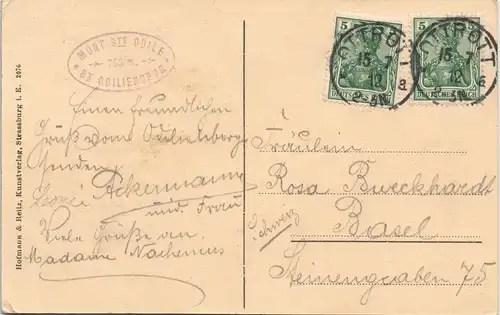 MONT STE ODILE
763 m.
ODILIENBERG
Hofmann & Reitz, Kunstverlag, Strassburg i. E. 2076
Einen freundlichen
Gruß vom Odilienberg
senden
Ackermann
und Frau
Viele Grüße an
Madame
5 5
DEUTSCHES REICH
DEUTSCHES REICH
OTTROTT
15 7
12
a
OTTROTT
15 7
12
a
Fräulein
Rosa Burckhardt
Basel
Schweiz
Steinengraben 75